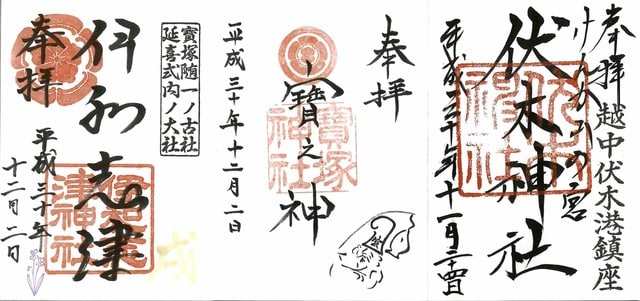 奉拝 越中伏木港鎮座
の宮
伏木神社
伏木神社
平成三十年十一月二十四日
奉拝
寶之神
寶塚神社
平成三十年十二月二日
寶塚随一ノ古社
延喜式内ノ大社
伊和志津
伊和志津神社
戌
奉拝
平成三十年
十二月二日